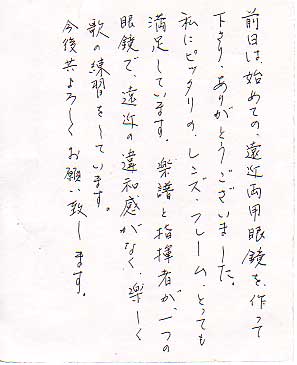 前日は、始めての、遠近両用眼鏡を、作って
下さり、ありがとうございました。
私にピッタリの、レンズ・フレーム、とっても
満足しています。楽譜と指揮者が、一つの
眼鏡で、遠近の違和感がなく、楽しく
歌の練習をしています。
今後共よろしくお願い致します。